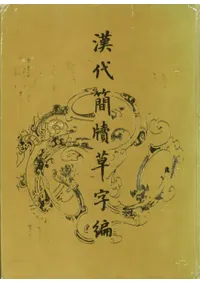 漢代簡牘草字編